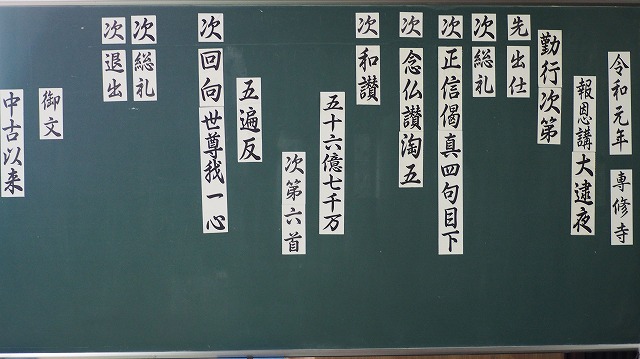 令和元年 専修寺
報恩講大逮夜
勤行次第
先 出仕
次 総礼
次 正信偈真四句目下
次 念仏讃淘五
次 和讃
五十六億七千万
次第六首
五遍反
次 回向 世尊我一心
次 総礼
次 退出
御文
中古以来